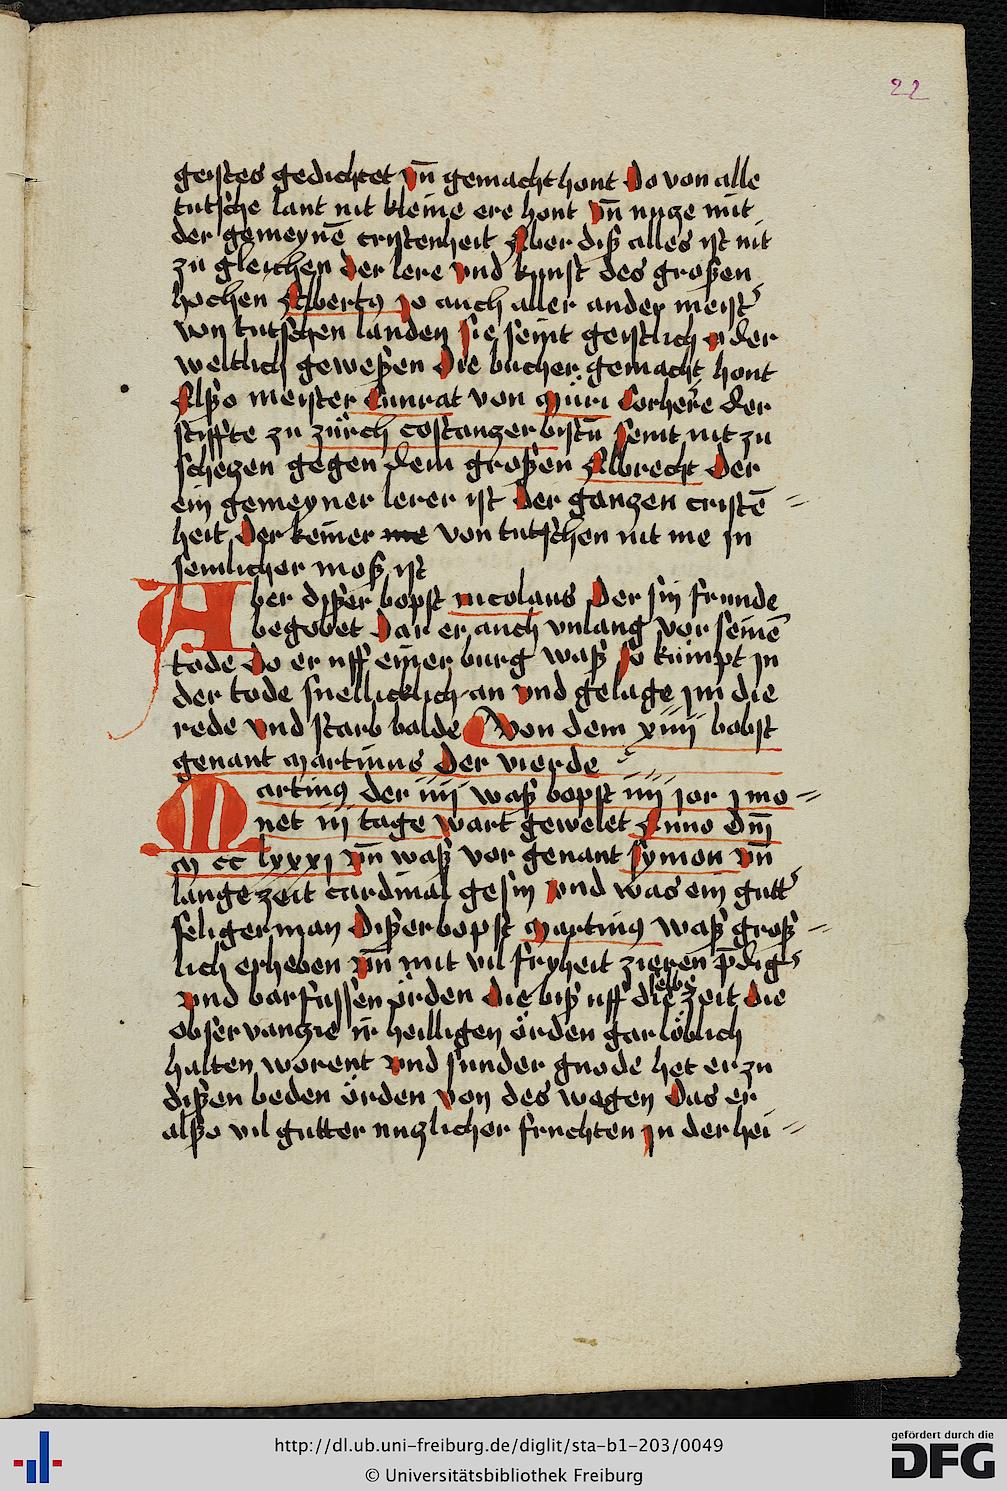 22
geistes gedichtet vn̄ gemacht hont Do von alle
tutsche lant nit kleine ere hont vn̄ nuze mit
der gemeynē cristenheit Aber diß alles ist nit
zu gleichen der lere vnd kunst des großen
hochen Albertꝯ so auch aller ander meist᾽
von tutschen landen sie seint geistlich oder
weltlich geweßen Die bucher gemacht hont
Alßo meister Cunrat von Müri Corhere der
stiffte zu zürch costanzer bistū seint nit zu
schezen gegen dem großen Albrecht Der
ein gemeyner lerer ist Der ganzen cristē=
heit Der keiner me von tutschen nit me jn
semlicher moß ist
Aber dißer bopst nicolaus Der sin frunde
begobet Dar er auch vnlang vor seinē
tode Do er uff einer burg waß so kümpt jn
der tode snellicklich an vnd gelage jm die
rede vnd starb balde Von dem xiiij bobst
genant Martinus Der vierde
Martinꝯ der iiij waß bopst iiij jor j mo=
net iij tage wart gewelet Anno dm̄
M cc lxxxj vn̄ waß vor genant symon vn̄
lange zeit cardinal gesin vnd was ein gutt᾽
seliger man Dißer bopst Martinꝯ waß groß=
lich erheben vn̄ mit vil fryheit zieren p̄dig᾽
vnd barfussen örden die biß uff die selbe zeit die
obseruanzie ir heilligen örden gar löblich
halten worent vnd sunder gnode het er zu
dißen beden örden von des wegen Das er
alßo vil gutter nuzlicher fruchten jn der hei=
http://dl.ub.uni-freiburg.de/diglit/sta-b1-203/0049
© Universitätsbibliothek Freiburg
gefördert durch die
DFG